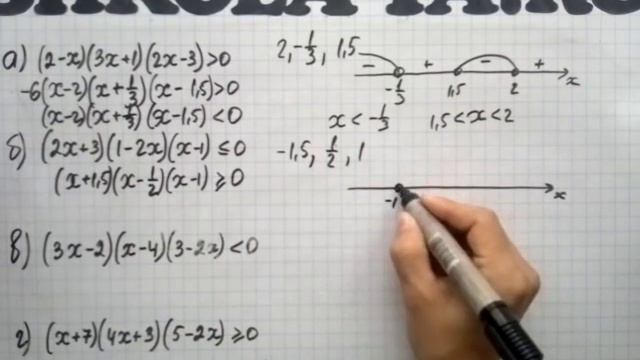 а) (2-x)(3x+1)(2x-3)>0
-6(x-2)(x+1/3)(x-1,5)>0
(x-2)(x+1/3)(x-1,5)<0
2, -1/3, 1,5
- + - +
-1/3 1,5 2 x
x<-1/3 1,5<x<2
б) (2x+3)(1-2x)(x-1)≤0
(x+1,5)(x-1/2)(x-1)≥0
-1,5, 1/2, 1
-1 x
в) (3x-2)(x-4)(3-2x)<0
г) (x+7)(4x+3)(5-2x)≥0